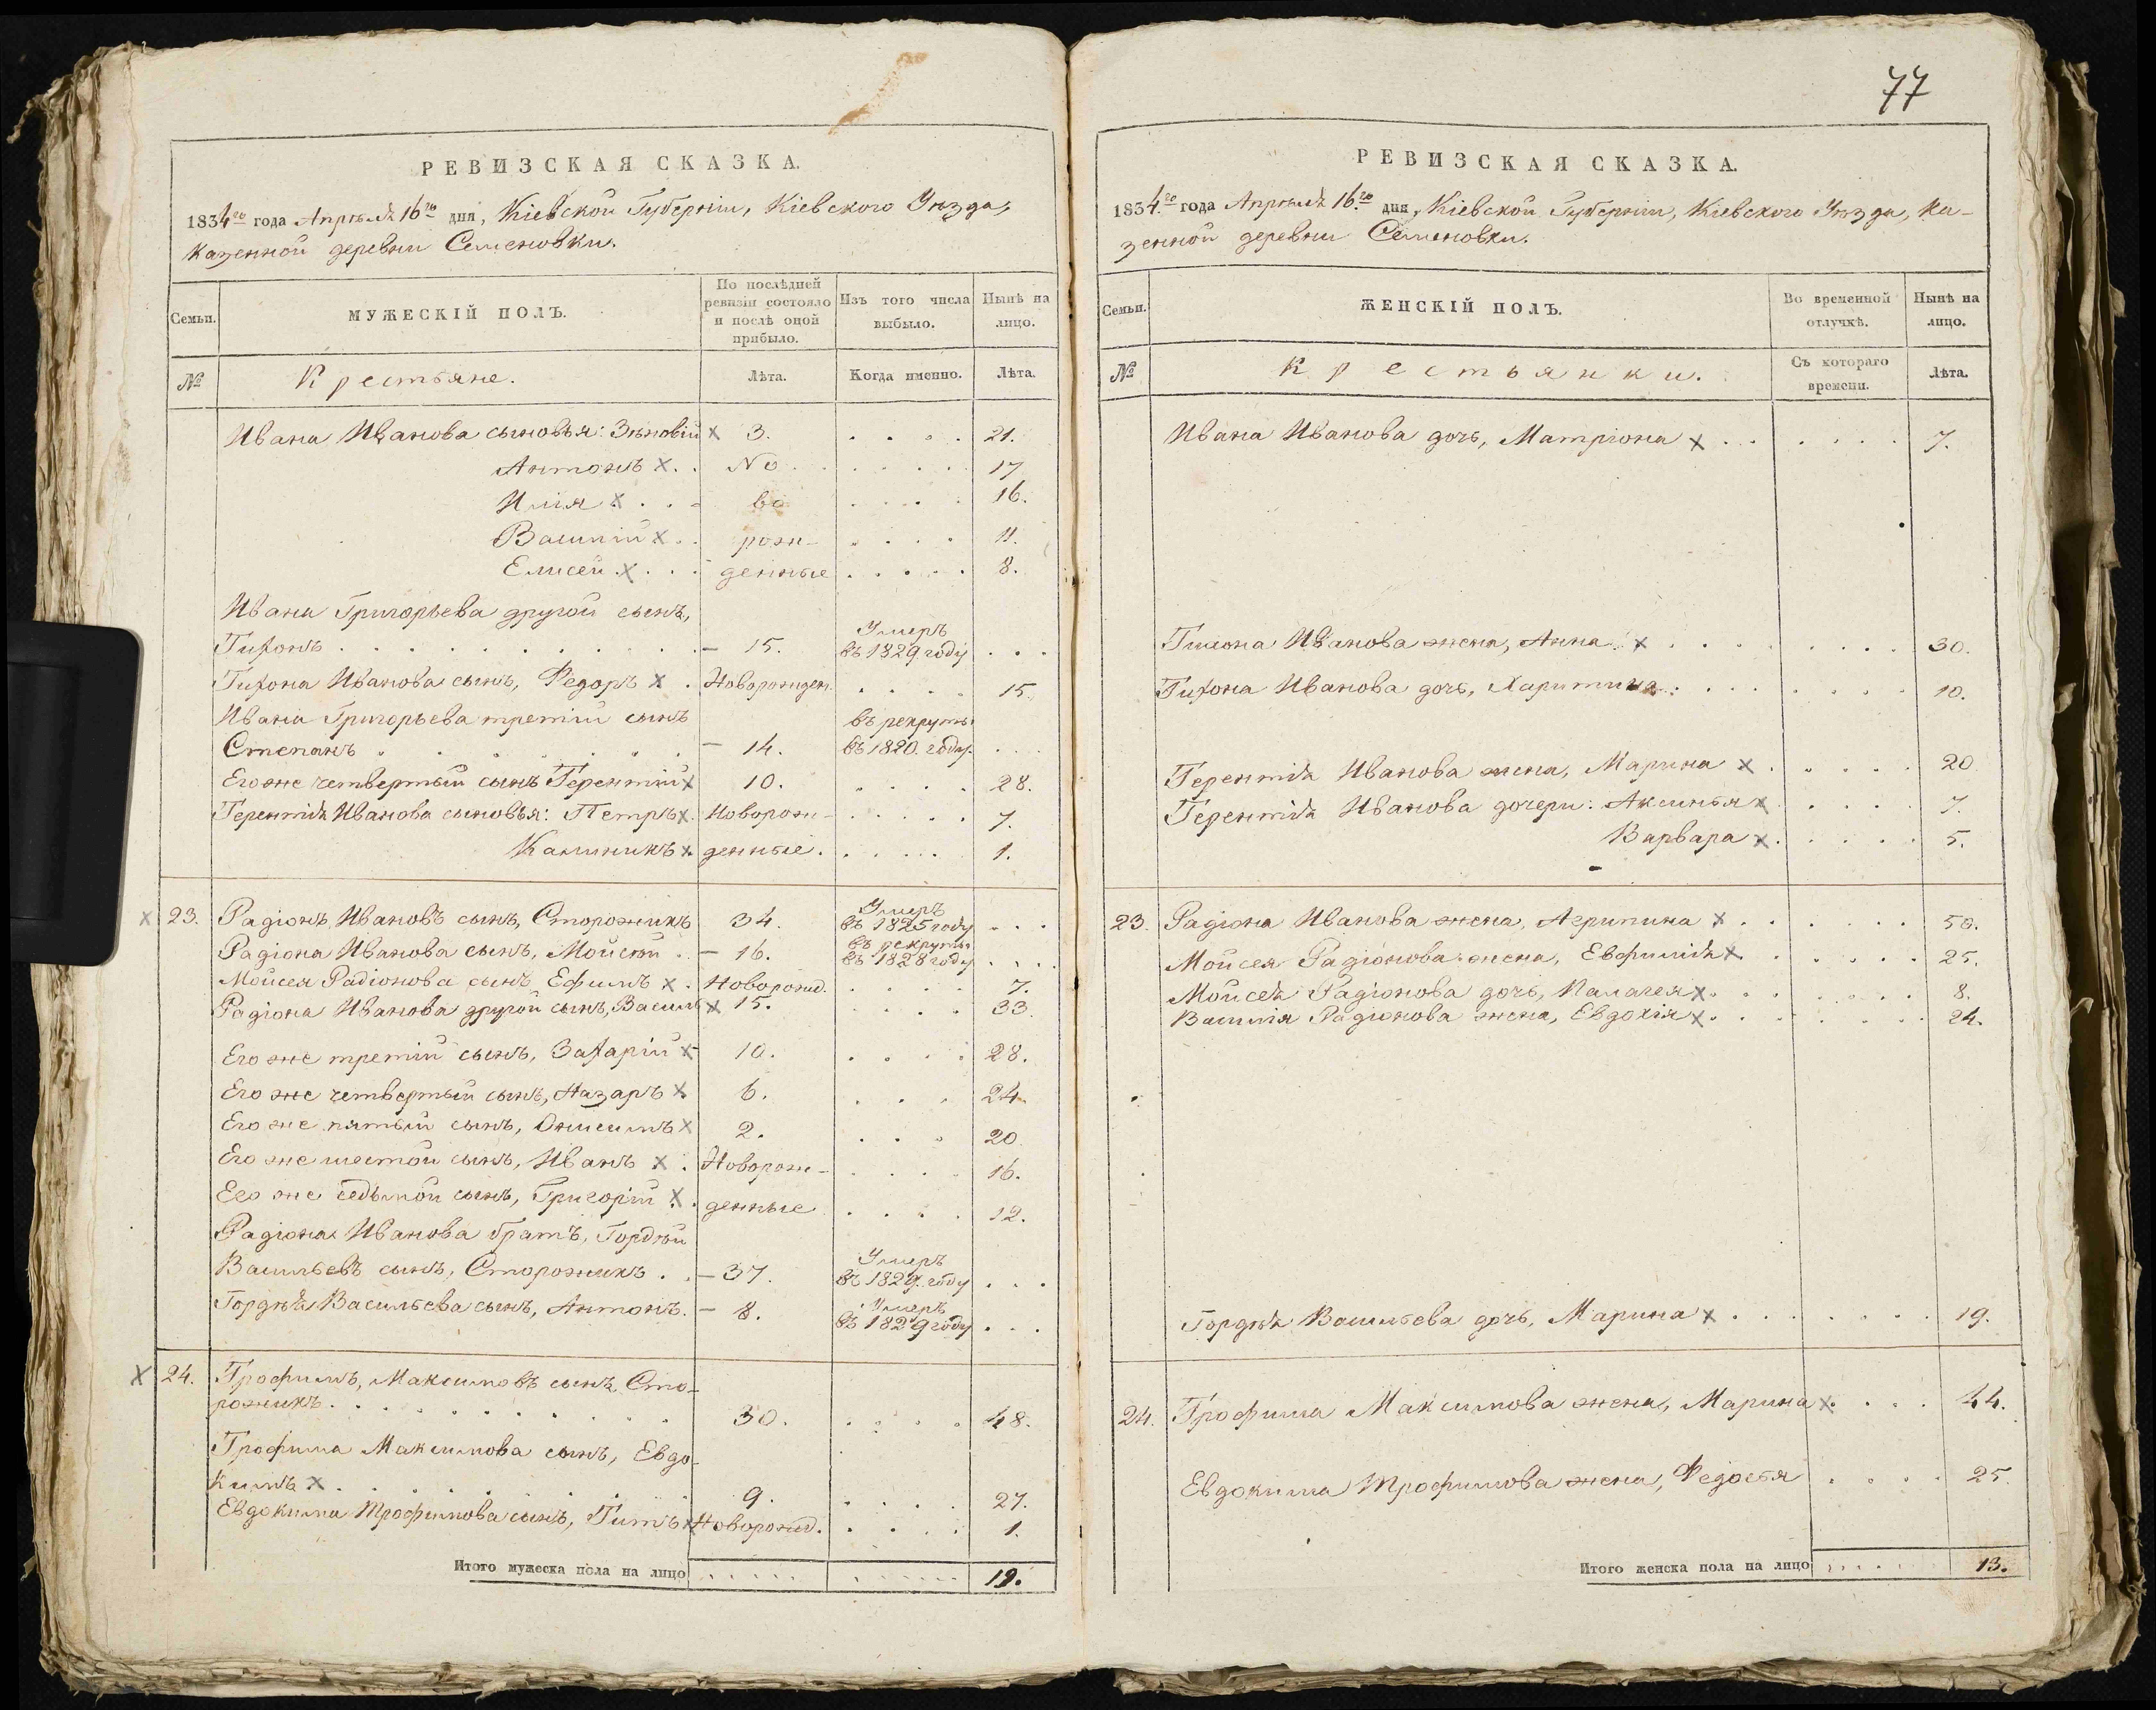 РЕВИЗСКАЯ СКАЗКА.
1834го года Апрѣля 16го дня, Кіевской Губерніи, Кіевского Уѣзда,
Казенной деревни Семеновки.
Семьи.
МУЖЕСКІЙ ПОЛЪ.
По послѣдней ревизіи состояло и послѣ оной прибыло.
Изъ того числа выбыло.
Нынѣ на лицо.
№
Крестьяне.
Лѣта.
Когда именно.
Лѣта.
Ивана Иванова сыновья: Зѣновій x 3. 21.
Антонъ x Но 17
Илія x во 16.
Василій x рож- 11.
Елисей x денные 8.
Ивана Григорьева другой сынъ,
Тихонъ 15. Умеръ въ 1829. году
Тихона Иванова сынъ, Федоръ x Новорожден. 15.
Ивана Григорьева третій сынъ
Степанъ 14. въ рекруты въ 1820. году.
Его же четвертый сынъ Терентій x 10. 28.
Терентія Иванова сыновья: Петръ x Новорож- 7.
Калиникъ x денные. 1.
x 23. Радіонъ Ивановъ сынъ, Сторожикъ 34. Умеръ въ 1825 году
Радіона Иванова сынъ, Мойсей 16. въ рекруты въ 1828 году
Мойсея Радіонова сынъ Ефимъ x Новорожд. 7.
Радіона Иванова другой сынъ, Василь x 15. 33.
Его же третій сынъ, Захарій x 10. 28.
Его же четвертый сынъ, Назаръ x 6. 24
Его же пятый сынъ, Онисимъ x 2. 20
Его же шестой сынъ, Иванъ x Новорож- 16.
Его же седьмой сынъ, Григорій x денные 12.
Радіона Иванова братъ, Гордѣй
Васильевъ сынъ, Сторожикъ 37. Умеръ въ 1829. году
Гордѣя Васильева сынъ, Антонъ. 8. Умеръ въ 1829 году
x 24. Трофимъ, Максимовъ сынъ Сто-
рожикъ 30. 48.
Трофима Максимова сынъ, Евдо-
кимъ x 9. 27.
Евдокима Трофимова сынъ, Титъ x Новорожд. 1.
Итого мужеска пола на лицо 19.
77
РЕВИЗСКАЯ СКАЗКА.
1834.го года Апрѣля 16.го дня, Кіевской Губерніи, Кіевского Уѣзда, Ка-
зенной деревни Семеновки.
Семьи.
ЖЕНСКІЙ ПОЛЪ.
Во временной отлучкѣ.
Нынѣ на лицо.
№
Крестьянки.
Съ котораго времени.
Лѣта.
Ивана Иванова дочь, Матріона x 7.
Тихона Иванова жена, Анна x 30.
Тихона Иванова дочь, Харитина 10.
Терентія Иванова жена, Марина x 20
Терентія Иванова дочери: Аксинья x 7.
Варвара x 5.
23. Радіона Иванова жена, Агрипина x 50.
Мойсея Радіонова жена, Евфимія x 25.
Мойсея Радіонова дочь, Палагея x 8.
Василія Радіонова жена, Евдохія x 24.
Гордѣя Васильева дочь, Марина x 19.
24. Трофима Максимова жена, Марина x 44.
Евдокима Трофимова жена, Федосья 25.
Итого женска пола на лицо 13.